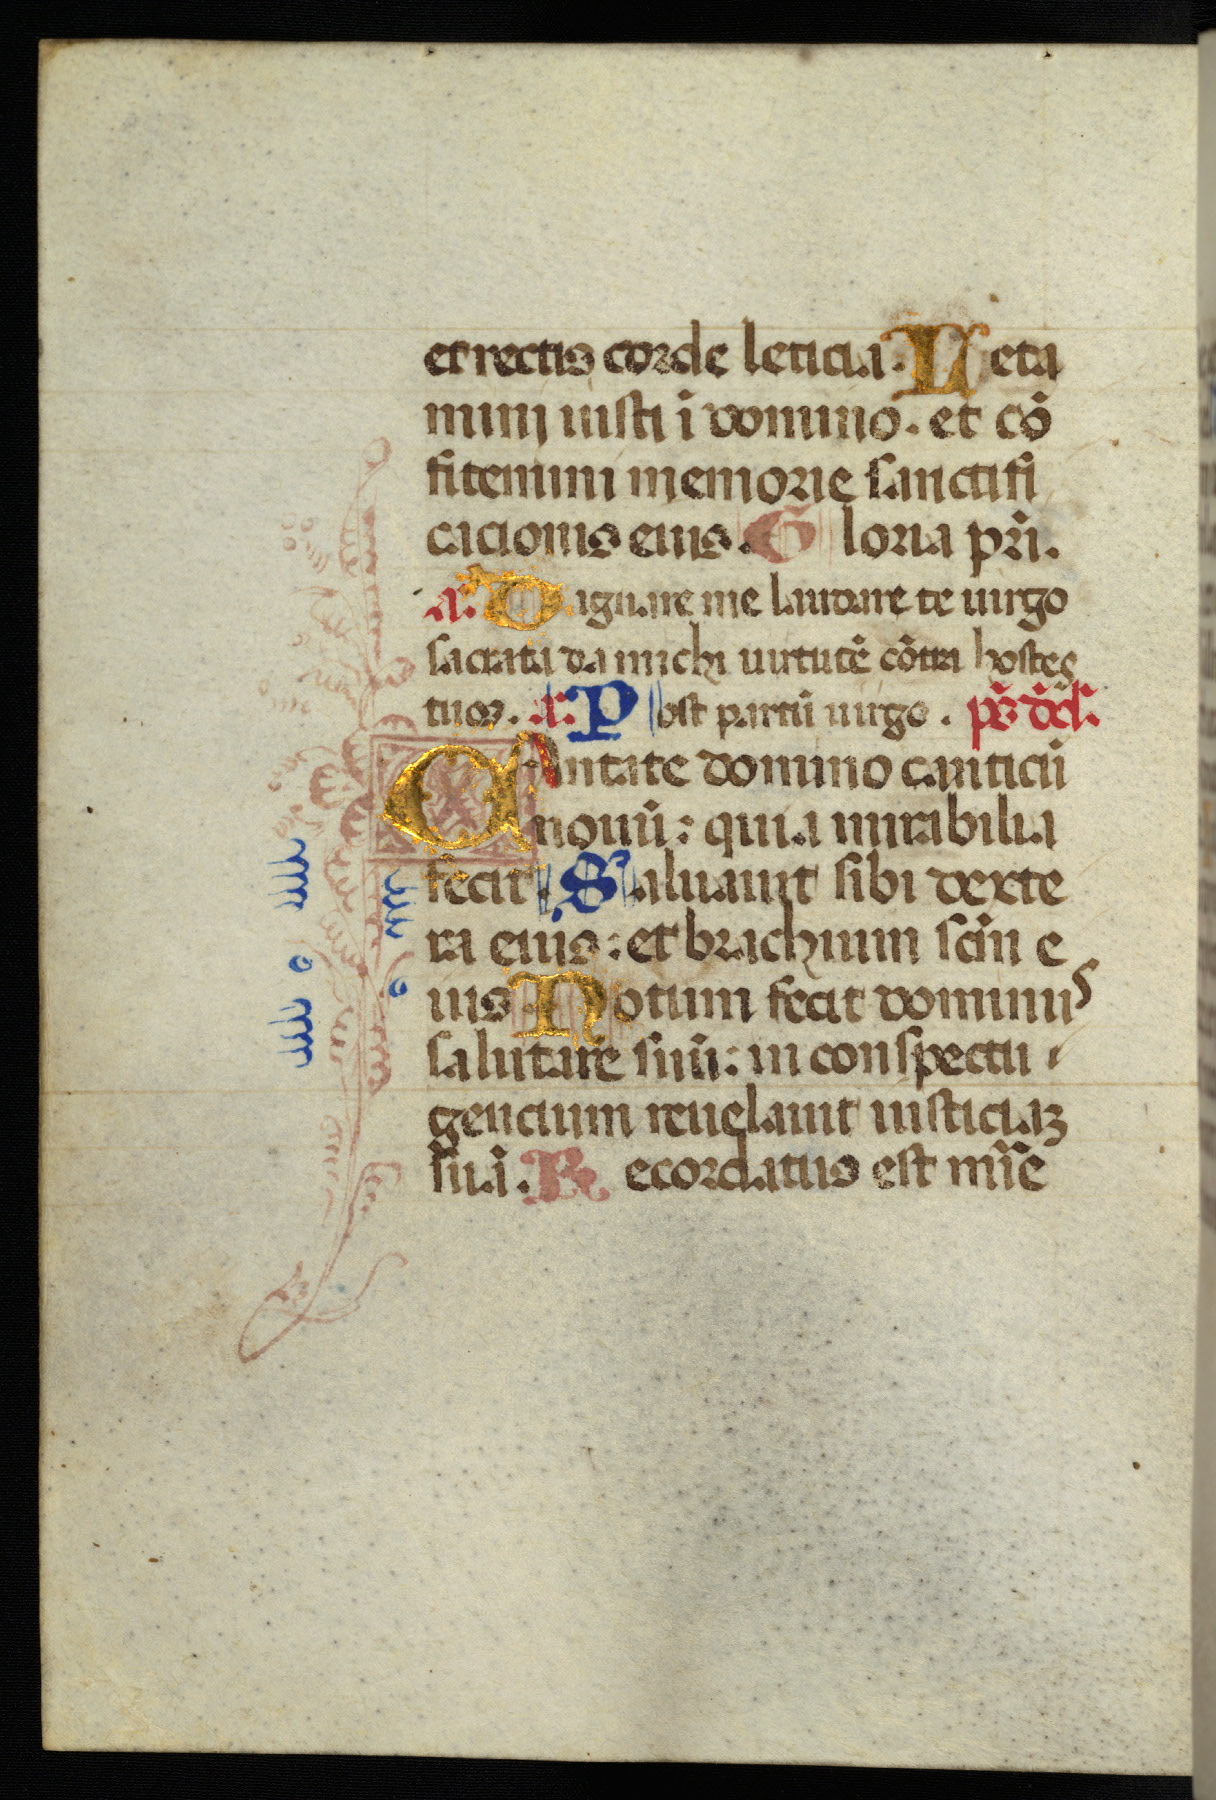 et rectis corde leticia. Leta
mini iusti ī domino. et cō
fitemini memorie sanctifi
cacionis eius. Gloria pr̄i.
a. Dignare me laudare te uirgo
sacrata da michi uirtutē cōtra hostes
tuos. a. Post partū uirgo. p̄s d̄d.
Cantate domino canticū
nouū: quia mirabilia
fecit. Saluauit sibi dexte
ra eius: et brachium sc̄m e
ius. Notum fecit dominus
salutare suū: in conspectu
gencium reuelauit iusticiaꝫ
suā. Recordatus est mīe